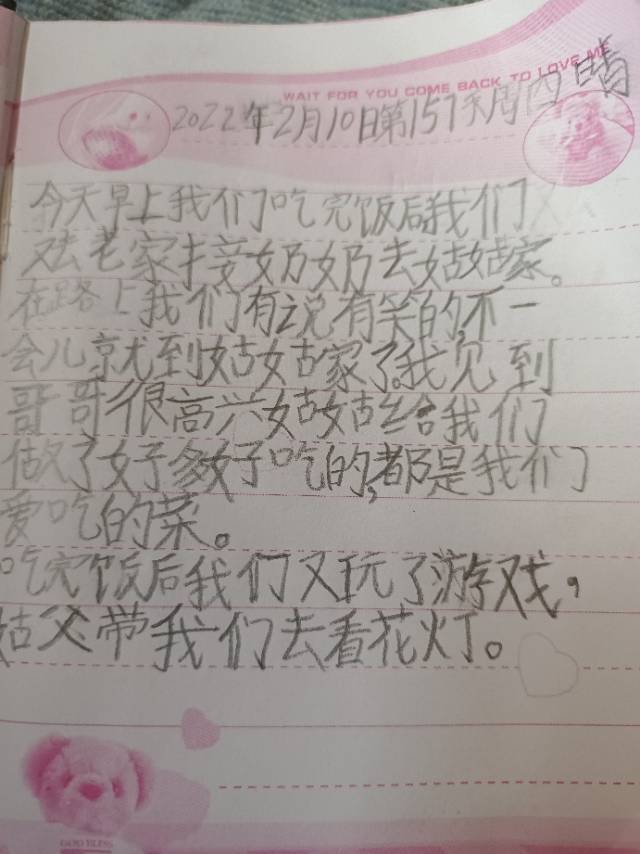 WAIT FOR YOU COME BACK TO LOVE ME
2022年2月10日第157天周四 晴
今天早上我们吃完饭后我们
去老家接奶奶去姑姑家。
在路上我们有说有笑的不一
会儿就到姑姑家了。我见到
哥哥很高兴姑姑给我们
做了好多好吃的,都是我们
爱吃的菜。
吃完饭后我们又玩了游戏,
姑父带我们去看花灯。
GOD BLESS